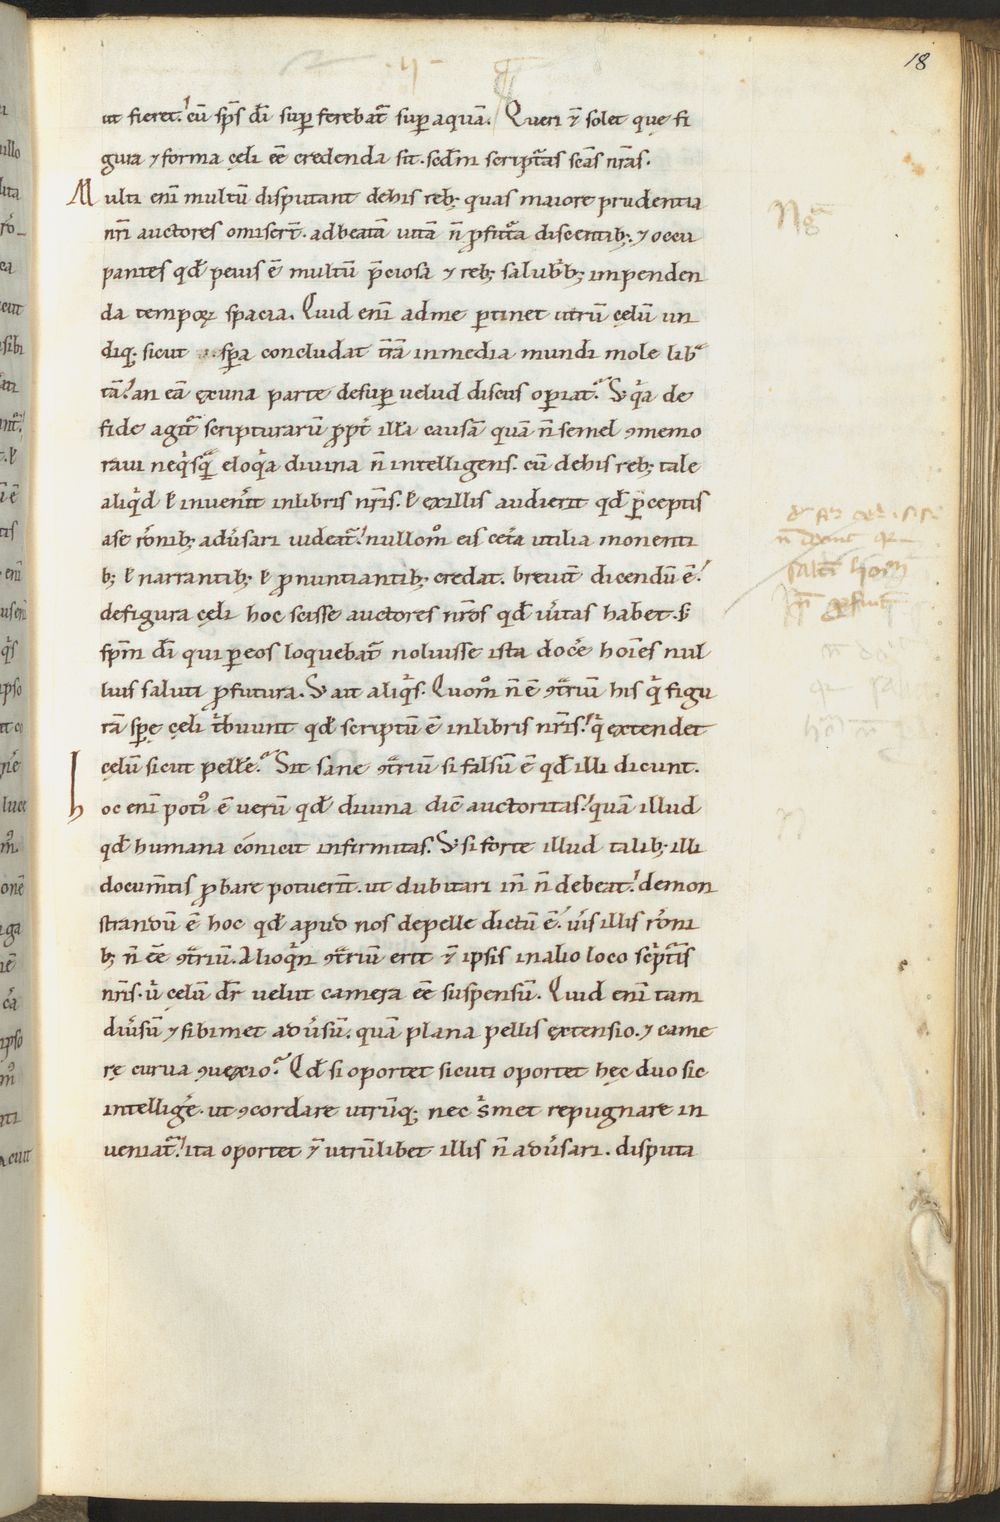 18
ut fieret. cū sp̄s dī suꝑ ferebat᷑ suꝑ aquā. Queri ⁊ solet quę fi
gura ⁊ forma cęli eē credenda sit. sedm̄ scripturas scās nr̄as.
Multi enī multū disputant dehis reb; quas maiore prudentia
nr̄i auctores omiserт̄. adbeatā uitā n̄ ꝓfutura discentib;. ⁊ occu
pantes qd̄ peius ē multū p̄ciosa ⁊ reb; salubrib; inpenden
da tempoꝝ spacia. Quid enī adme ꝑtinet utrū cęlū un
diq; sicut spęra concludat tr̄ā inmedia mundi mole libra
tā. an eā exuna parte desuꝑ uelud discus oꝑiat᷑. S; quia de
fide agit᷑ scripturarū ꝓpt̄ illā causā quā n̄ semel ꝯmemo
raui neq̇sq̄ eloq̇a diuina n̄ intelligens. cū dehis reb; tale
aliq̇d ł inuenerit inlibris nr̄is. ł exillis audierit qd̄ ꝑceptis
ase rōnib; aduersari uideat᷑. nullom̊ eis cetera utilia monenti
b; ł narrantib; ł ꝓnuntiantib; credat. breuit̄ dicendū ē.
defigura cęli hoc scisse auctores nr̄os qd̄ ueritas habet. s;
sp̄m dī qui ꝑeos loquebat᷑ noluisse ista docere hoīes nul
lius saluti ꝓfutura. S; ait aliq̇s. Quom̊ n̄ ē ꝯtrariū his q̇ figu
rā spęrę cęli tribuunt qd̄ scriptū ē inlibris nr̄is. q̇ extendet
cęlū sicut pellē. Sit sane ꝯtrariū si falsū ē qd̄ illi dicunt.
hoc enī poti᷒ ē uerū qd̄ diuina dic̄ auctoritas. quā illud
qd̄ humana cōnicit infirmitas. S; si forte illud talib; illi
documentis ꝓbare potuerint. ut dubitari in̄ n̄ debeat. demon
strandū ē hoc qd̄ apud nos depelle dictū ē. ueris illis rōni
b; n̄ eē ꝯtrariū. Alioq̇n ꝯtrariū erit ⁊ ipsis inalio loco scripturis
nr̄is. u̇ celū dr̄ uelut camera eē suspensū. Quid enī tam
diuersū ⁊ sibimet aduersū. quā plana pellis extensio. ⁊ came
rę curua ꝯuexio. Qd̄ si oportet sicuti oportet hęc duo sic
intelligere. ut ꝯcordare utrūq; nec s̄met repugnare in
ueniat᷑. ita oportet ⁊ utrūlibet illis n̄ aduersari. disputa